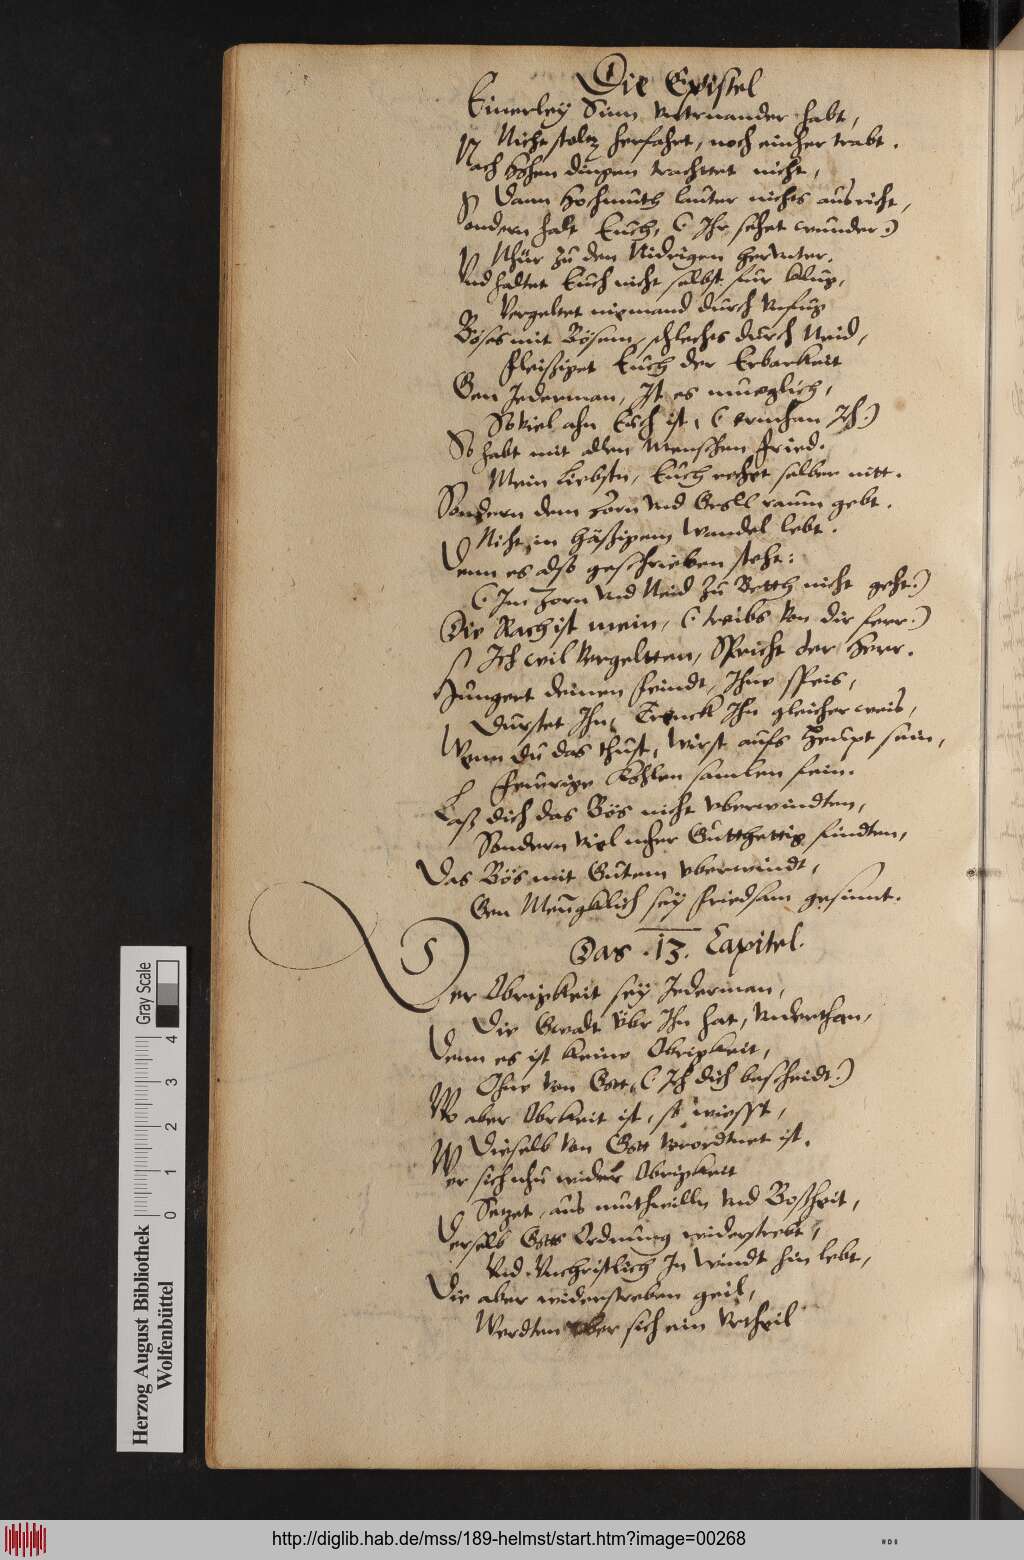 Die Epistel
Einerley Sinn vntrnander habt,
Nicht stoltz herfahrt, noch einher trabt.
Nach hohen dingen trachtet nicht,
Dann hochmuth lauter nichts ausricht,
Sondern halt Euch, (: Ihr sehet wunder:)
Nhür zu den Nidrigen herunter.
Vnd haltet Euch nicht selbst fur klug,
Vergeltet niemand durch Vnfug
Böses mit Bösem, schlechts durch Neid,
Fleissiget Euch der Erbarkeit
Gen Jederman, Ist es mueglich,
So viel ahn Euch ist, (: ermhan Ich:)
So habt mit allen Menschen fried.
Mein Liebsten, Euch rechet selber nitt.
Sondern dem Zorn vnd Grell raum gebt.
Nicht in häßigem Wandel lebt.
Denn es also geschrieben steht:
(: Im Zorn vnd Neid zu Betth nicht geht:)
Die Rach ist mein, (: treibs von dir ferr:)
Ich wil vergeltten, Spricht der Herr.
Hungert deinen feindt, Ihne speis,
Durstet Ihn, Trenck Ihn gleicher weis,
Wenn du das thust, wirst aufs Heupt sein,
Feurige Kohlen samlen fein.
Laß dich das Bös nicht vberwindten,
Sondern viel mher Gutthettig findten,
Das Bös mit Gutem vberwindt,
Gen Menigklich sey friedsam gesinnt.
Das .13. Capitel.
Der Obrigkeit sey Jederman,
Die Gwalt vbr Ihn hat, vnderthan,
Denn es ist keine Obrigkeit,
Ohne von Gott, (: Ich dich bescheidt:)
Wo aber Obrkeit ist, so wiesst,
Dieselb von Gott verordtnet ist.
Wer sich nhu wider Obrigkeit
Setzet, aus muthwilln vnd Boßheit,
Derselb Gotts Ordnung widerstrebt,
Vnd Vnchristlich In windt hin lebt,
Die aber widerstreben geil,
Werdten vber sich ein Vrtheil
Herzog August Bibliothek
Wolfenbüttel
0 1 2 3 4
Gray Scale
http://diglib.hab.de/mss/189-helmst/start.htm?image=00268